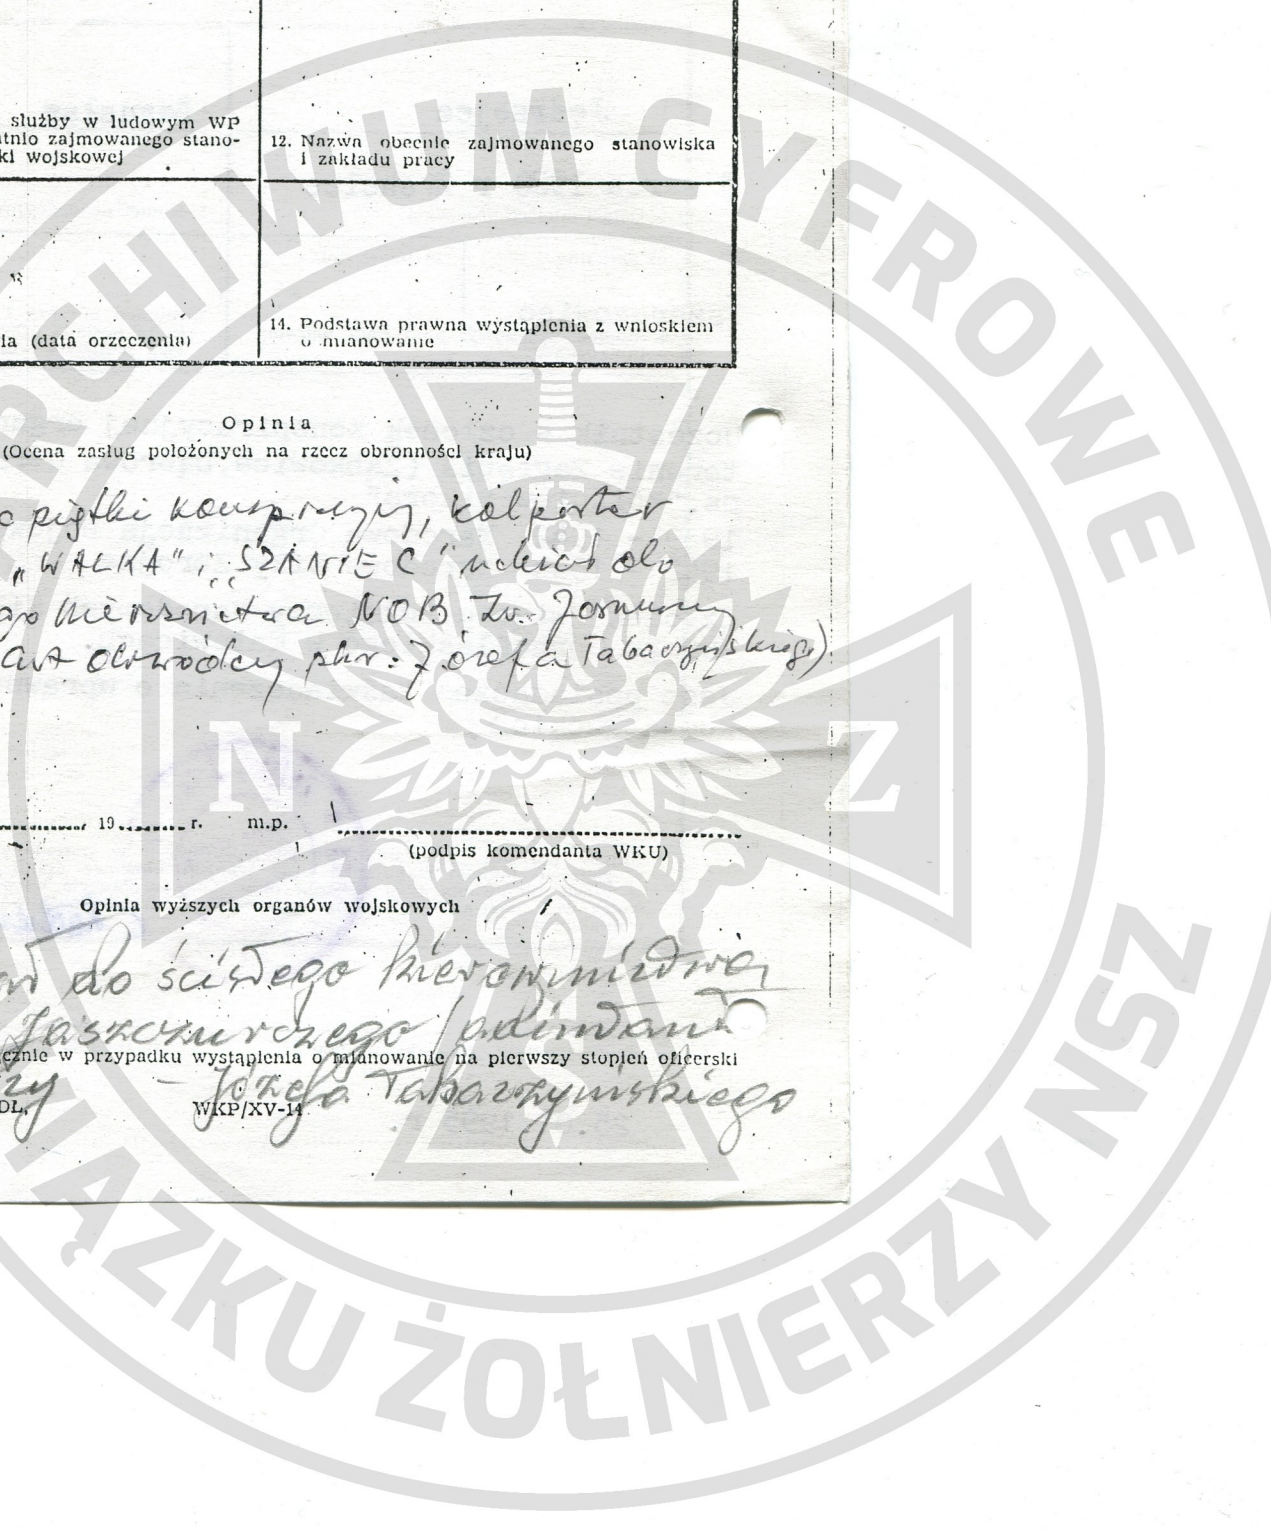 służby w ludowym WP
tnio zajmowanego stano-
ki wojskowej
12. Nazwa obecnie zajmowanego stanowiska
i zakładu pracy
ia (data orzeczenia)
14. Podstawa prawna wystąpienia z wnioskiem
o mianowanie
Opinia
(Ocena zasług położonych na rzecz obronności kraju)
piątki konspiracyjnej, kolporter
"WALKA" i "SZANIEC" należał do
kierownictwa NOB Zw.
Józefa Tabaczyńskiego)
19 r. m.p.
(podpis komendanta WKU)
Opinia wyższych organów wojskowych
do ścisłego kierownictwa
Jaszczurczego /adiutant
cznie w przypadku wystąpienia o mianowanie na pierwszy stopień oficerski
- Józefa Tabaczyńskiego
DŁ, WKP/XV-14
ARCHIWUM CYFROWE
ZWIĄZKU ŻOŁNIERZY NSZ
N Z